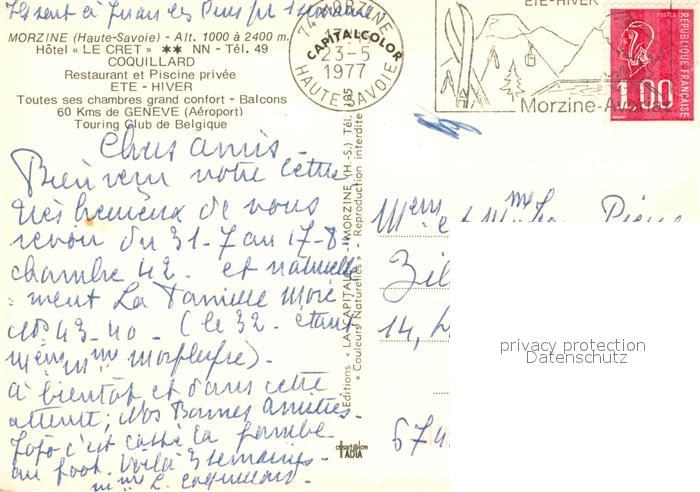 Ils sont à Juan les Pins pr 1 semaine
MORZINE (Haute-Savoie) - Alt. 1000 à 2400 m.
Hôtel « LE CRET » ★★ NN - Tél. 49
COQUILLARD
Restaurant et Piscine privée
ETE - HIVER
Toutes ses chambres grand confort - Balcons
60 Kms de GENEVE (Aéroport)
Touring Club de Belgique
Chers amis -
Bien reçu votre lettre
très heureux de vous
revoir du 31-7 au 17-8
chambre 42 - et naturelle
=ment La Famille
43-40 - (le 32 étant
Mme
à bientôt et dans cette
attente, Nos Bonnes Amitiés -
c'est cassé la jambe
au foot. Voilà 3 semaines -
Mme L. Coquillard
74 MORZINE
CAPITALCOLOR
23-5
1977
HAUTE-SAVOIE
ETE-HIVER
Morzine-Avoriaz
POSTES
REPUBLIQUE FRANÇAISE
1,00
Editions « LA CAPITALE » - MORZINE (H.-S.) Tél. 185
« Couleurs Naturelles » - Reproduction interdite
IADIA
et Mme Pierre
14,
674
privacy protection
Datenschutz